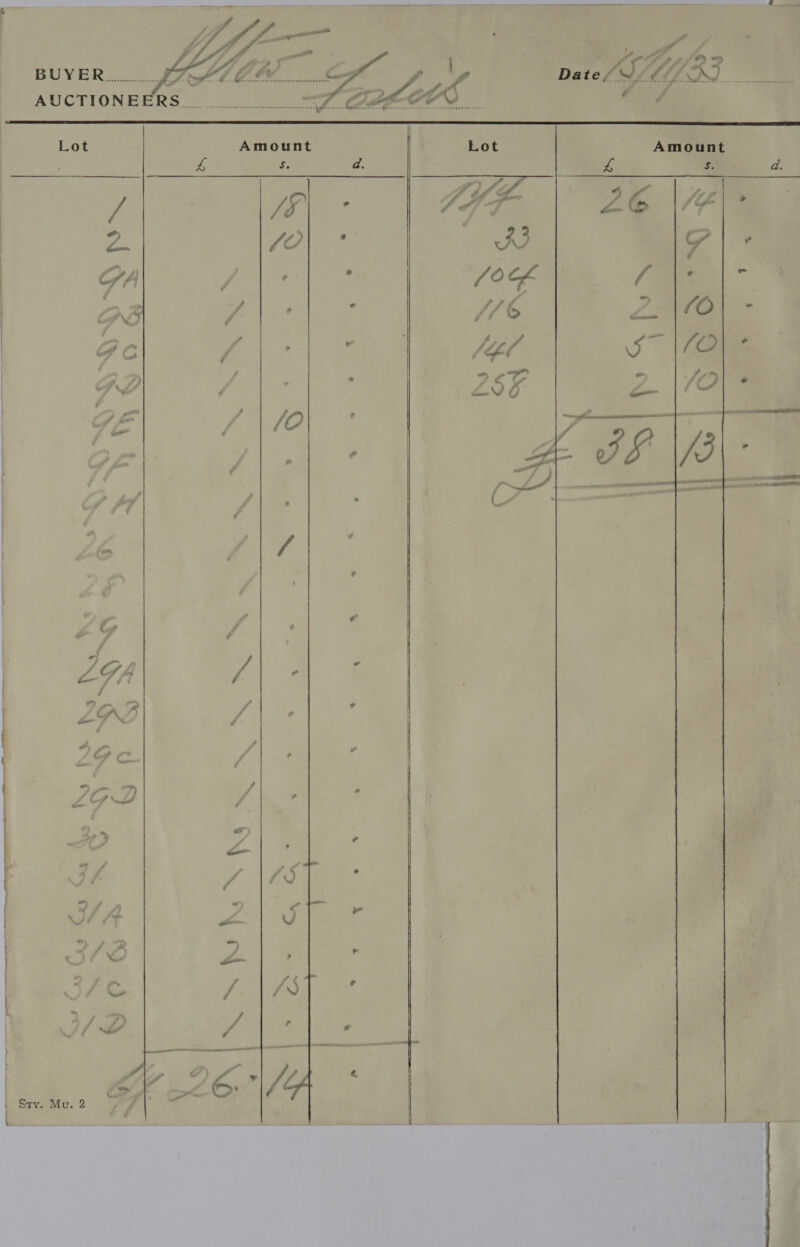 BUYER
Date 15/11/33
AUCTIONEERS
Lot Amount Lot Amount
£ s. d. £ s. d.
1 18 - 26 14 -
2 10 - 33 9 -
9A 1 - - 104 1 - -
9B 1 - - 116 2 10 -
9C 1 - - 141 5 10 -
9D 1 - - 258 2 10 -
9E 1 10 - £ 38 13 -
9F 1 - -
9H 1 - -
26 1 1 -
28 1 - -
29 1 - -
29A 1 - -
29B 1 - -
29C 1 - -
29D 1 - -
30 2 - -
31 1 15 -
31A 2 5 -
31B 2 - -
31C 1 15 -
31D 1 - -
26 14 -
Sty. Mu. 2